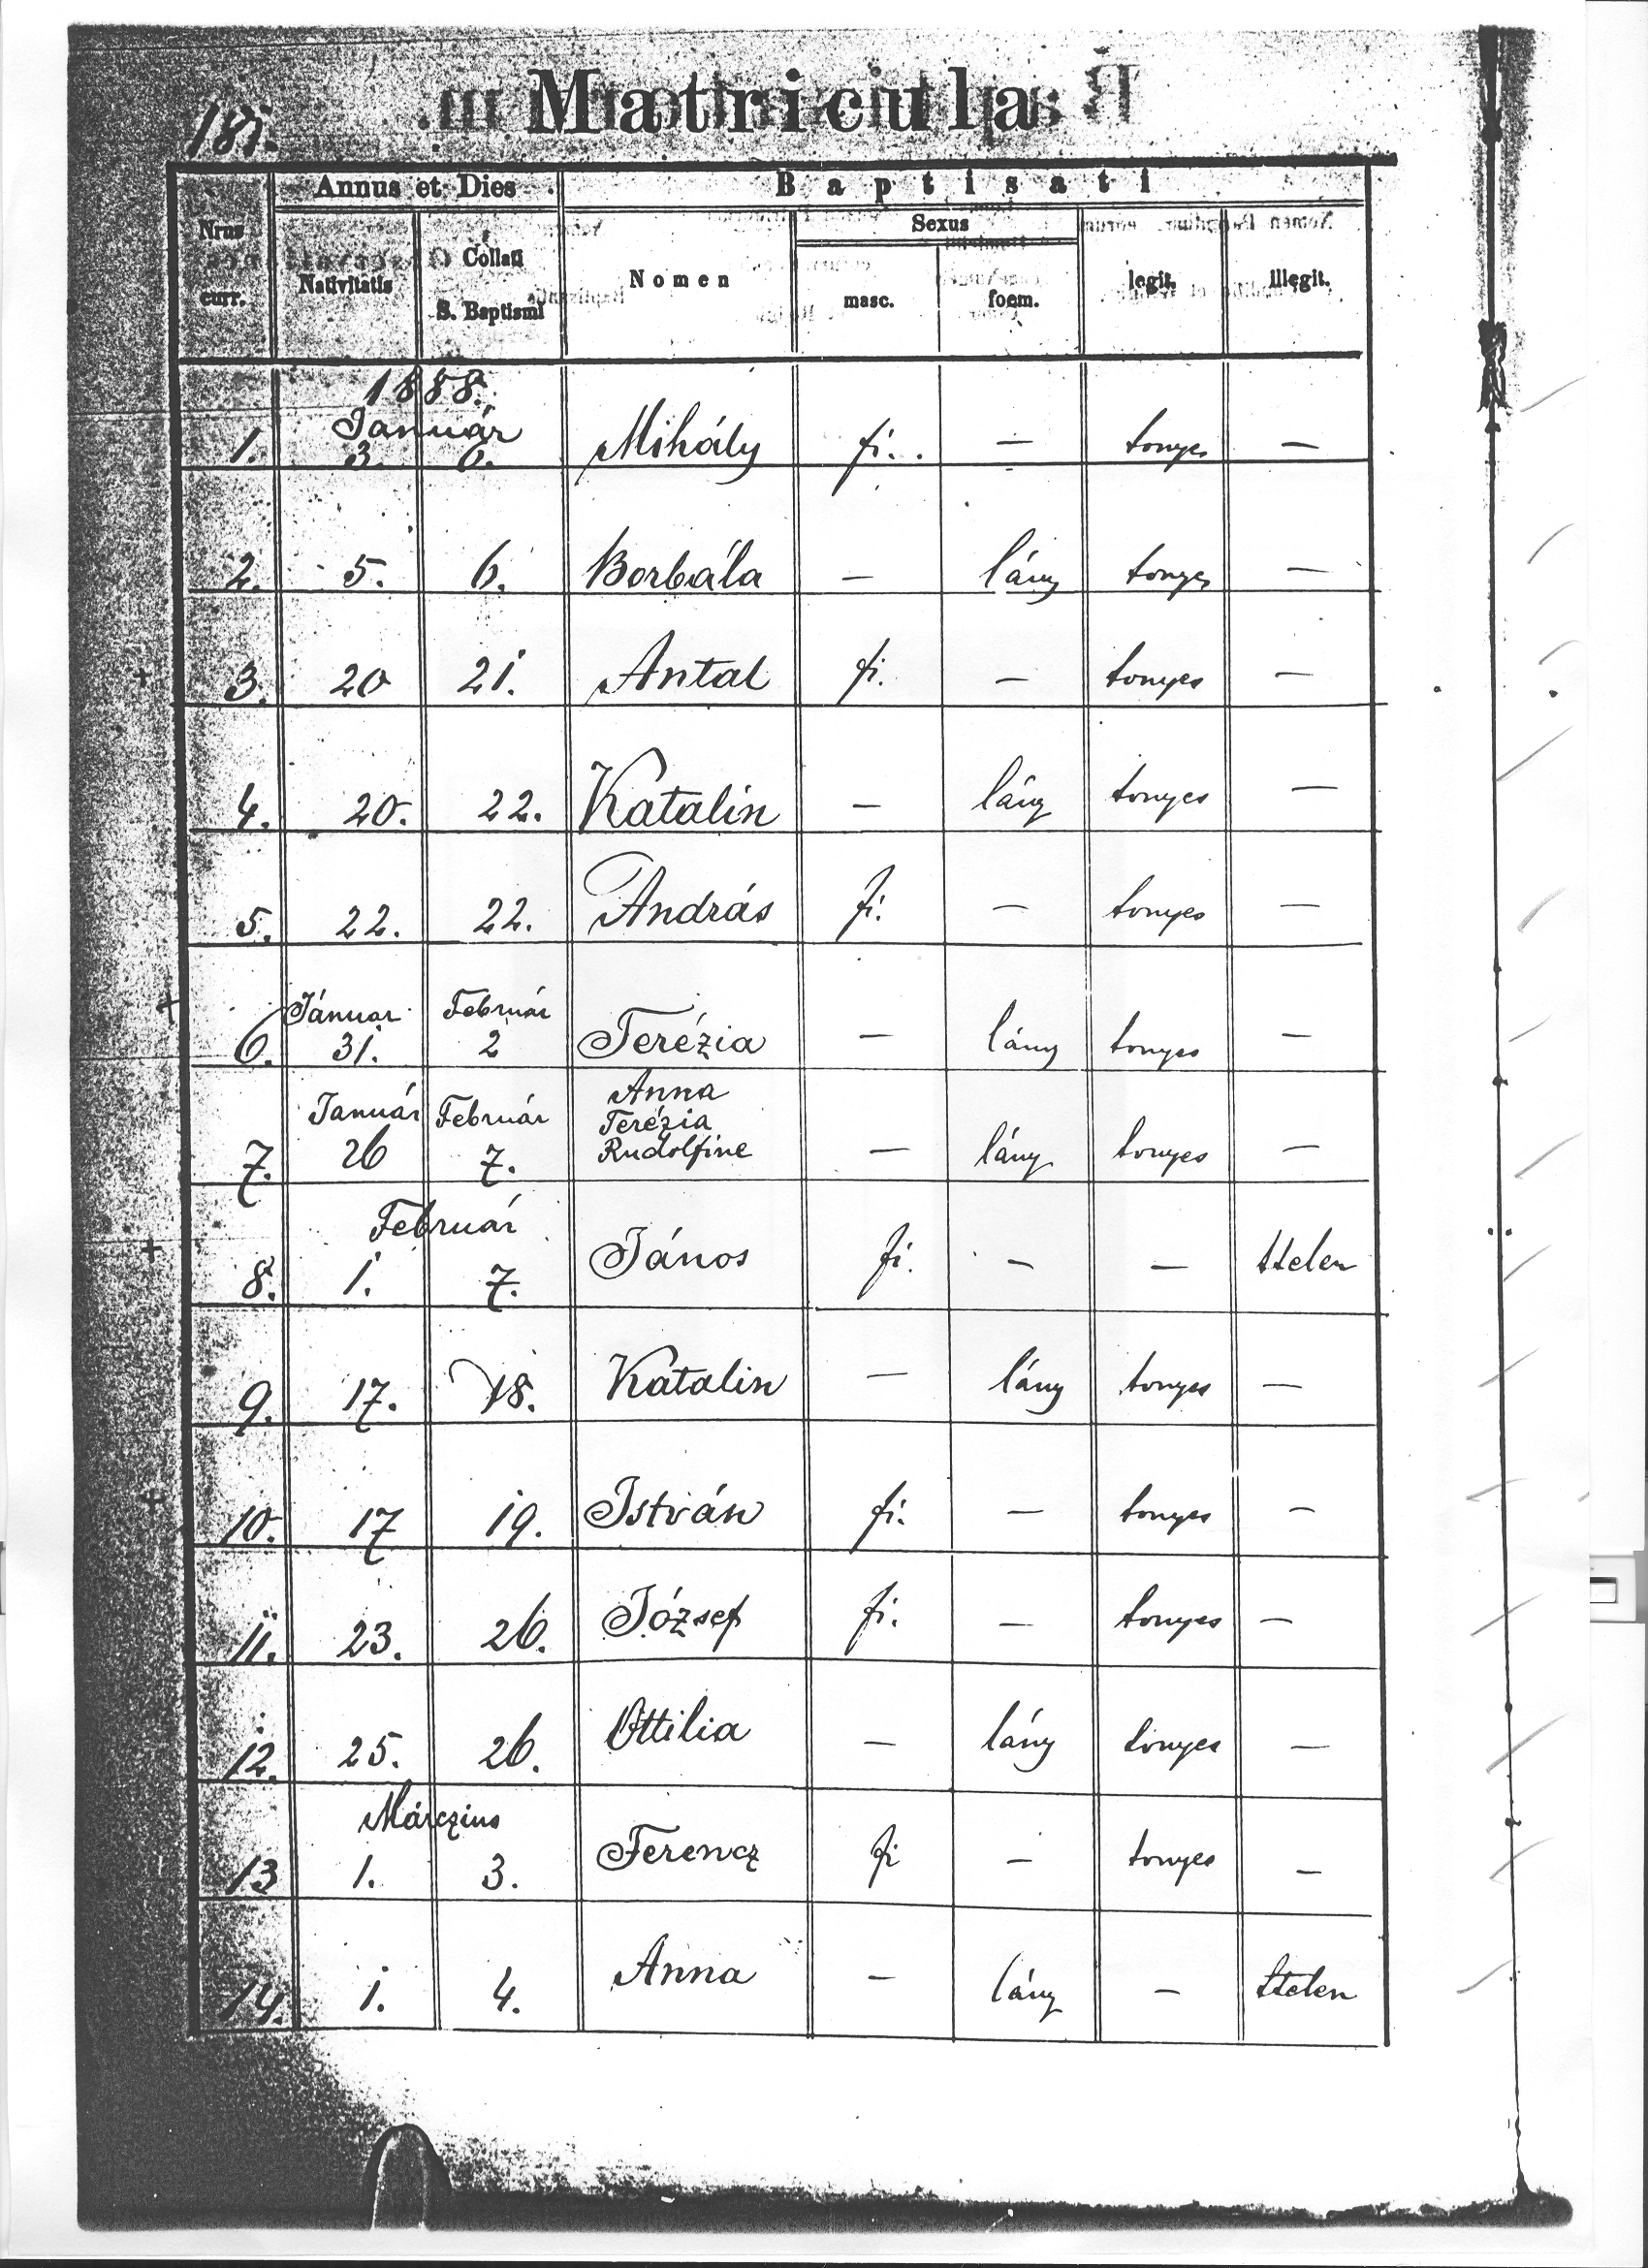 Matricula
Annus et Dies
Baptisati
Nrus curr.
Nativitatis
Collati S. Baptismi
Nomen
Sexus
masc.
foem.
legit.
illegit.
1888.
Január
1. 3. 6. Mihály fi. — tonyes —
2. 5. 6. Borbála — lány tonyes —
3. 20 21. Antal fi. — tonyes —
4. 20. 22. Katalin — lány tonyes —
5. 22. 22. András fi. — tonyes —
Január Február
6. 31. 2 Terézia — lány tonyes —
Január Február Anna
Terézia
7. 26 7. Rudolfine — lány tonyes —
Február
8. 1. 7. János fi. — — ttelen
9. 17. 18. Katalin — lány tonyes —
10. 17 19. István fi. — tonyes —
11. 23. 26. József fi. — tonyes —
12. 25. 26. Ottilia — lány tonyes —
Márczius
13 1. 3. Ferencz fi — tonyes —
14. 1. 4. Anna — lány — ttelen